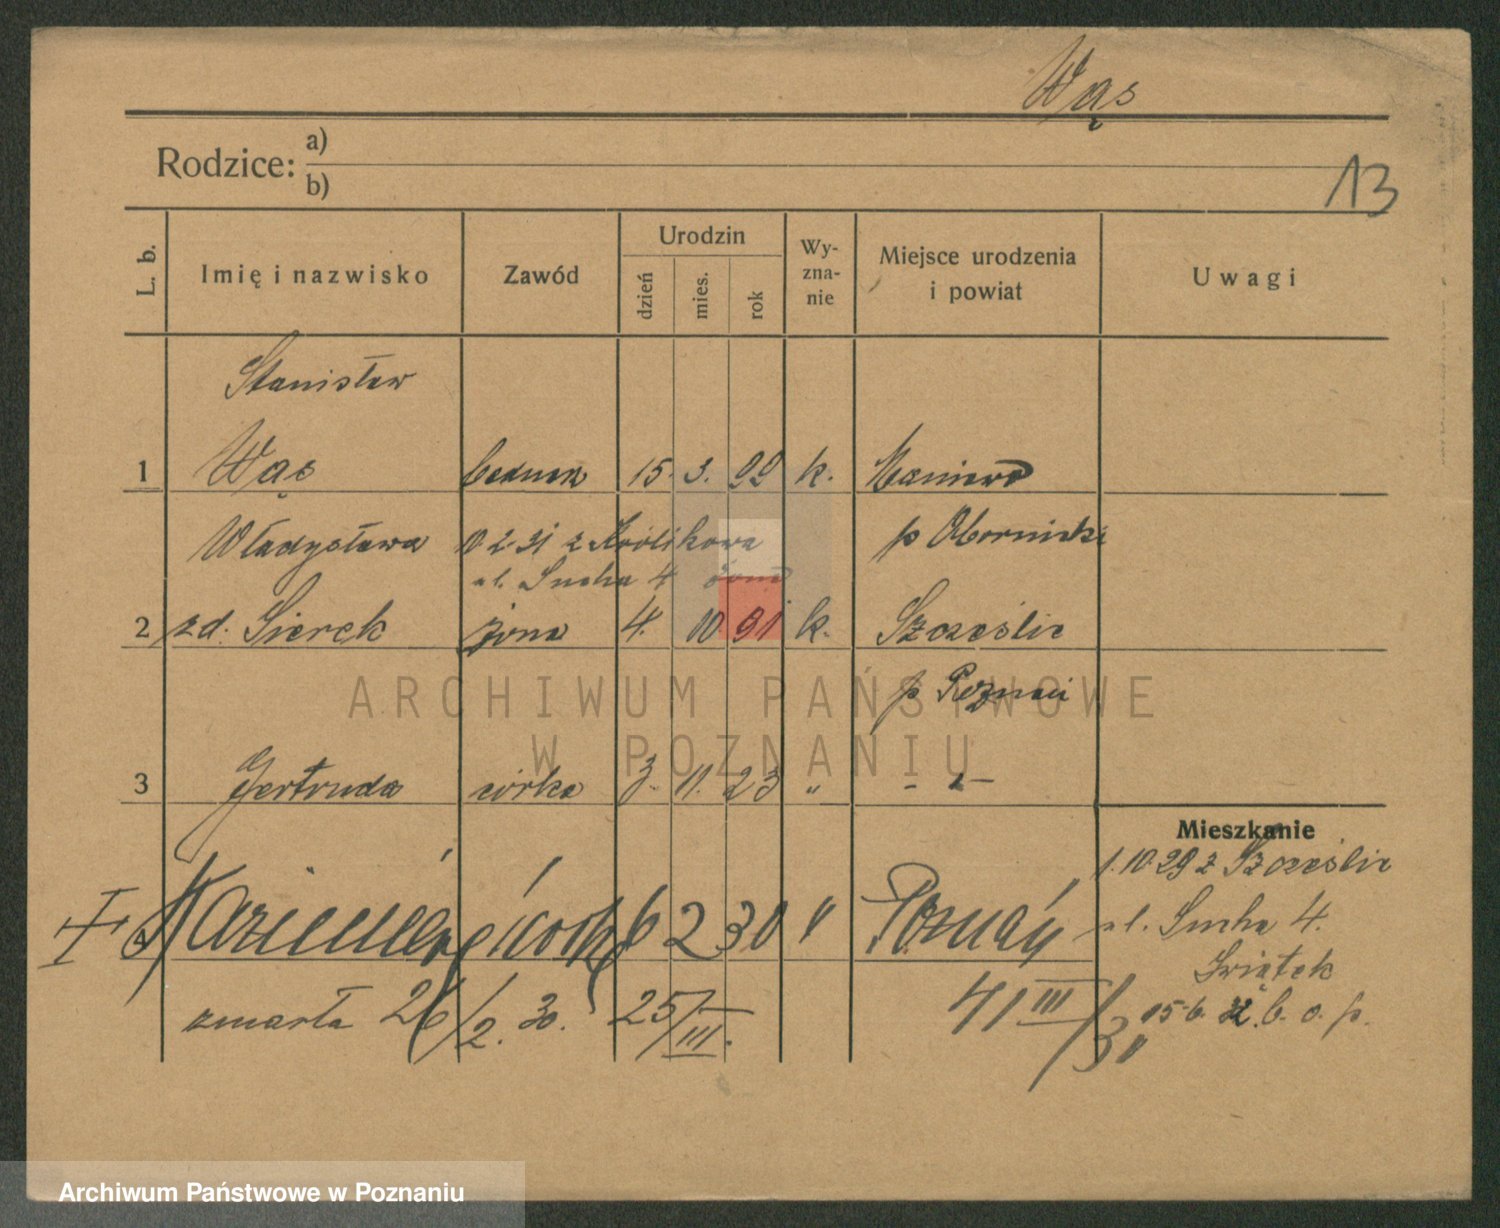 Wąs
Rodzice: a)
b)
13
L. b. Imię i nazwisko Zawód Urodzin dzień mies. rok Wy-zna-nie Miejsce urodzenia i powiat Uwagi
Stanisław
1 Wąs bednarz 15. 3. 99 k. Maniewo
Władysława 10 2 31 z Królikowa p Obornicki
ul. Sucha 4 żona
2 zd. Sierek żona 4. 10 91 k. Szczęślic
p Poznań
3 Gertruda córka 3. 11. 23 " - " -
Mieszkanie
1. 10. 29 z Szczęślic
4 Kazimiera córka 6 2 30 " Poznań
ul. Sucha 4.
Świątek
zmarła 26/2. 30. 25/III. 41 III/30
15. 6. 32. b. o. p.
ARCHIWUM PAŃSTWOWE
W POZNANIU
Archiwum Państwowe w Poznaniu